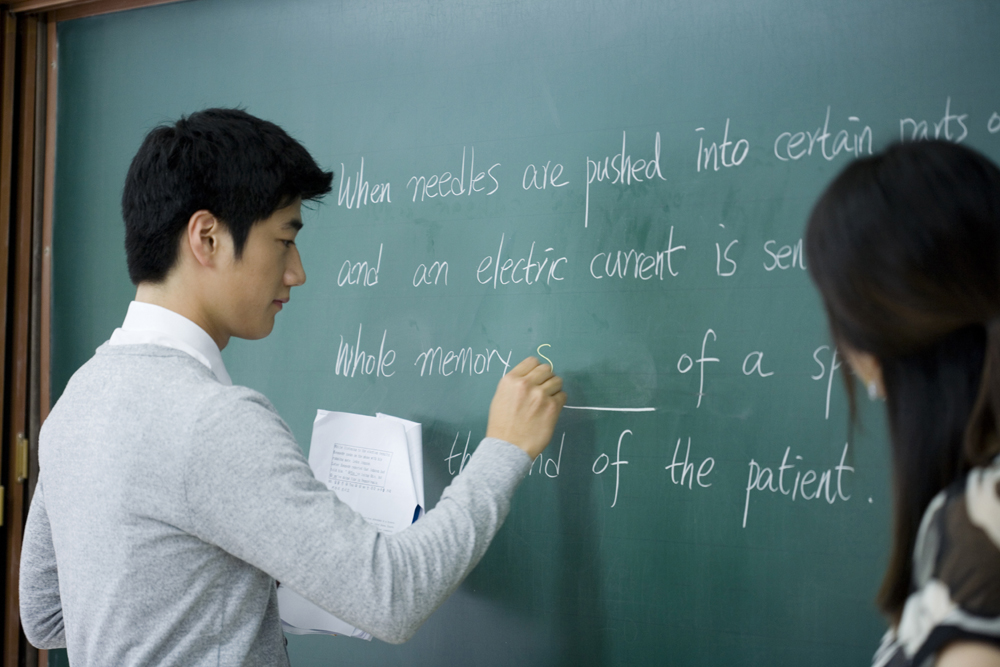 When needles are pushed into certain parts
and an electric current is
Whole memory s of a
of the patient.